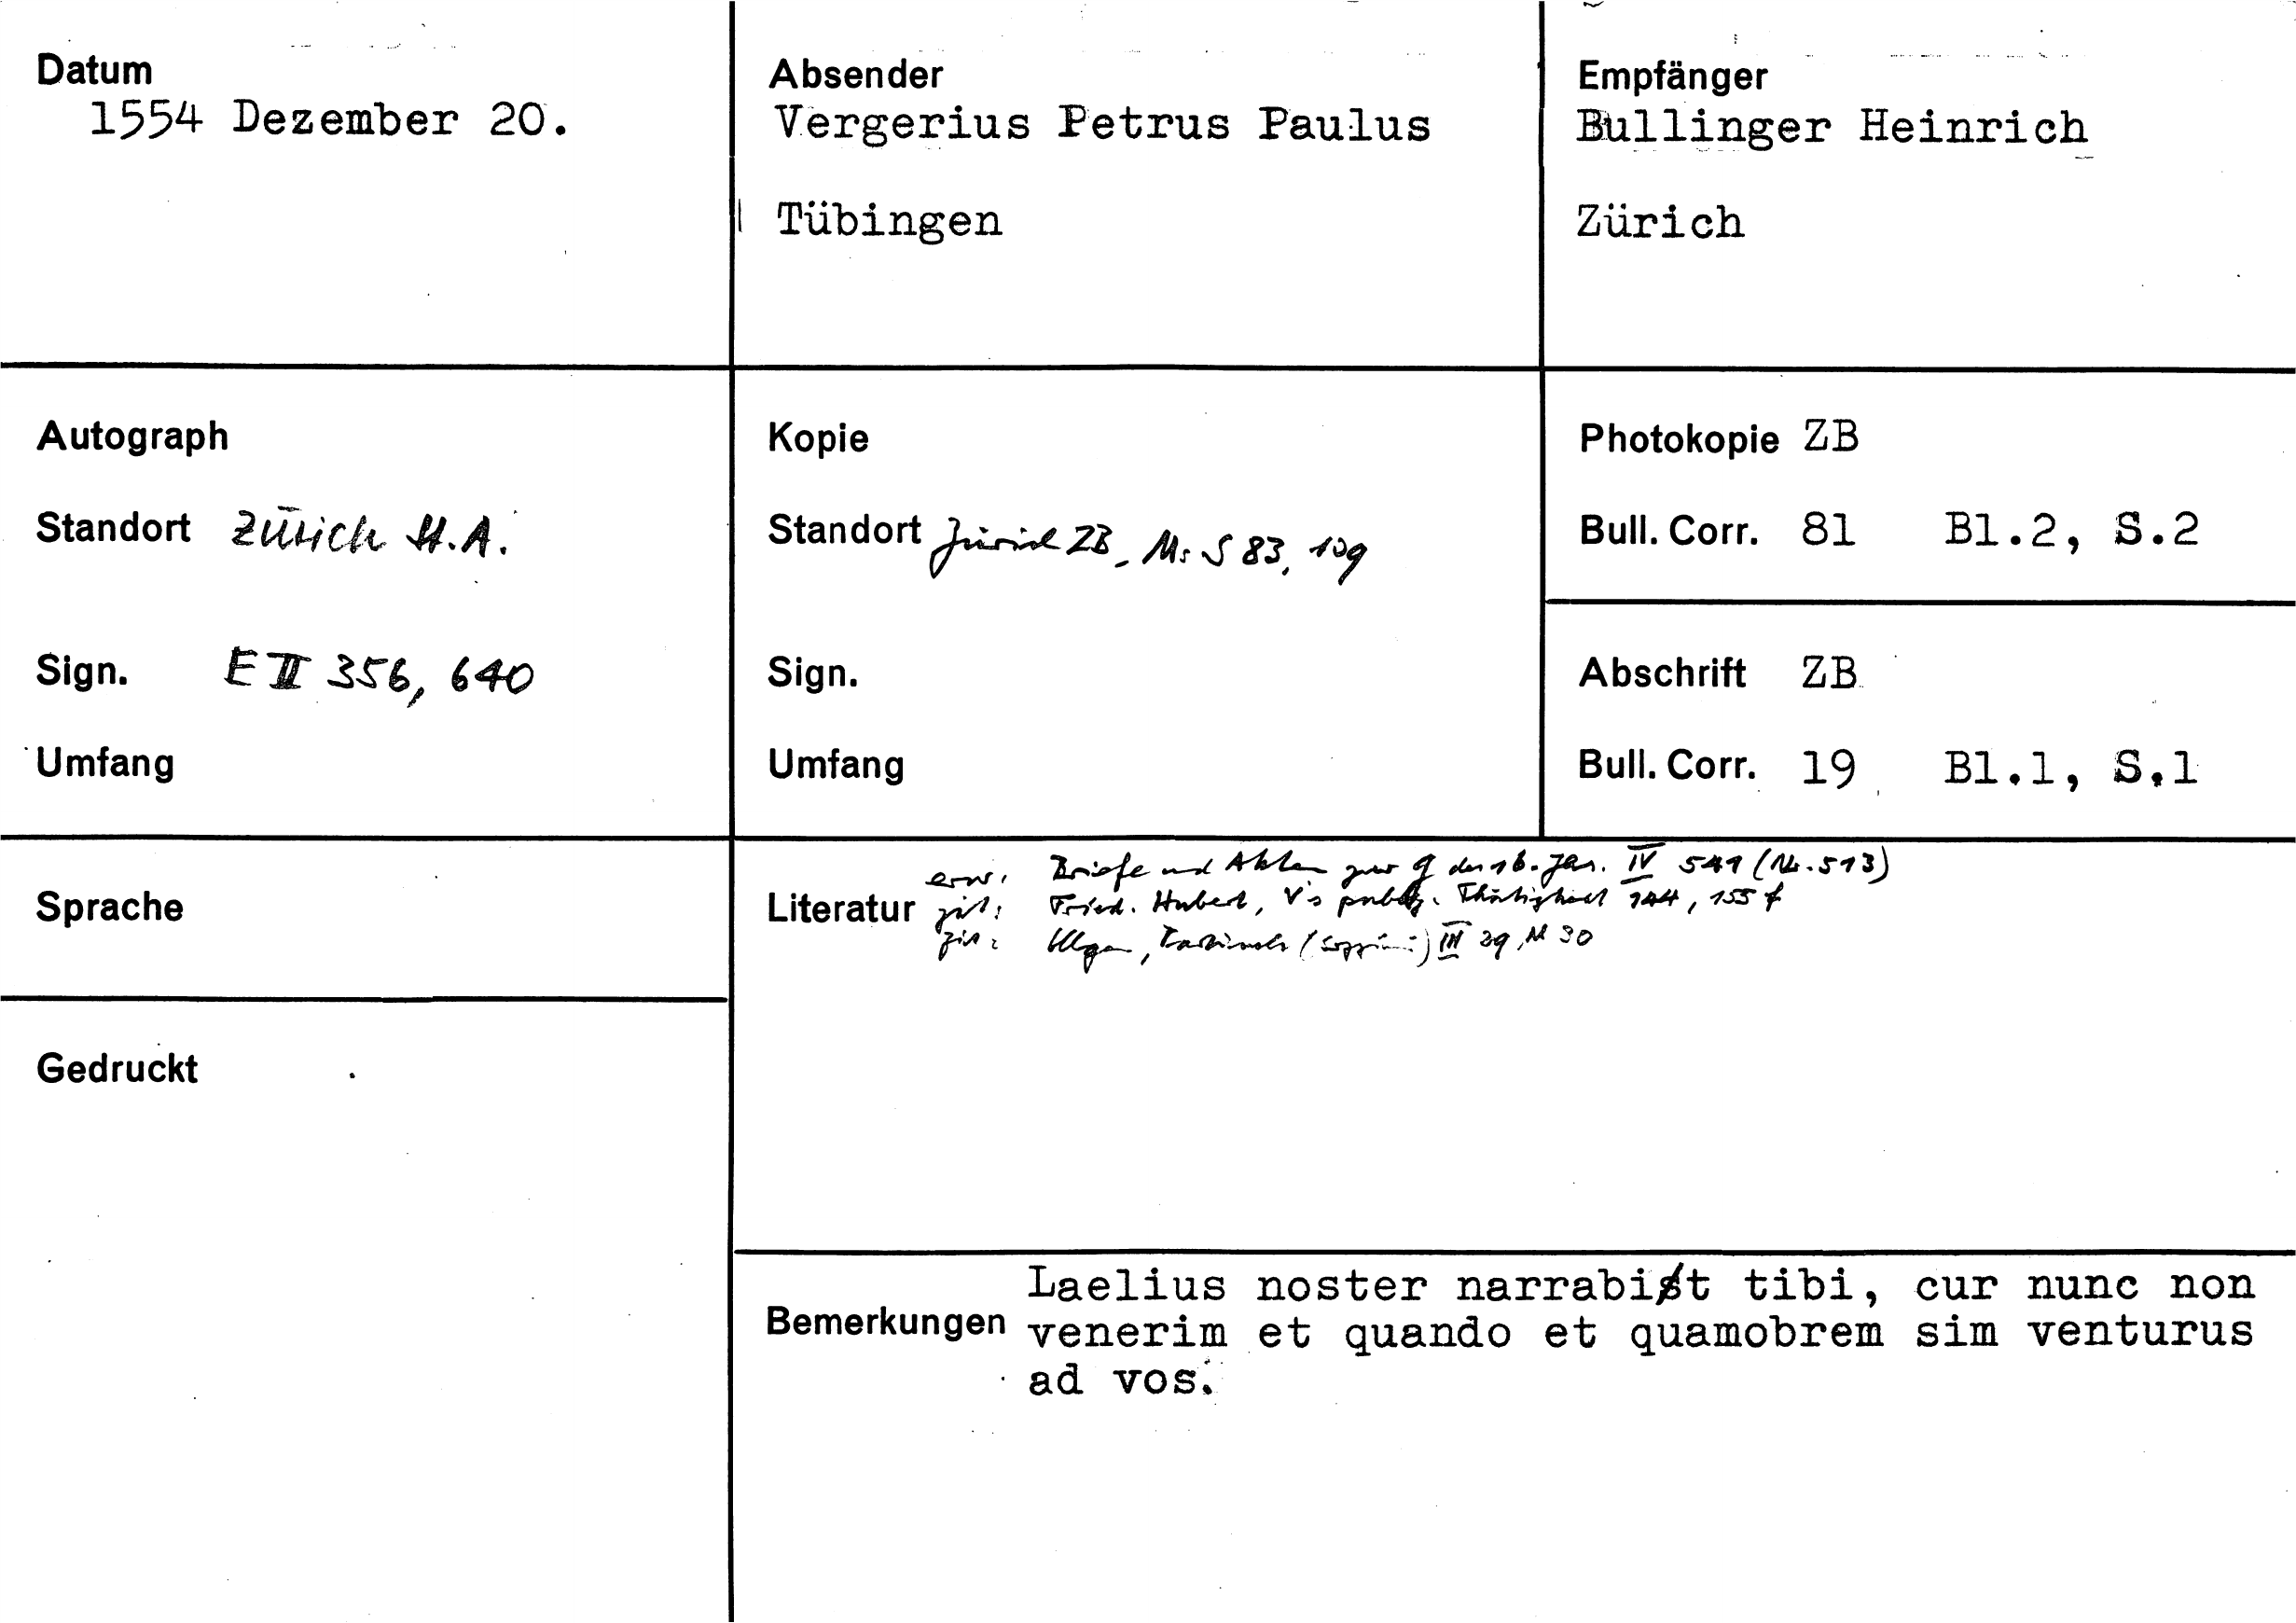 Datum
1554 Dezember 20.
Absender
Vergerius Petrus Paulus
Tübingen
Empfänger
Bullinger Heinrich
Zürich
Autograph
Standort Zürich St.A.
Sign. E II 356, 640
Umfang
Kopie
Standort Zürich ZB, Ms S 83, 109
Sign.
Umfang
Photokopie ZB
Bull. Corr. 81 Bl.2, S.2
Abschrift ZB
Bull. Corr. 19 Bl.1, S.1
Sprache
Gedruckt
Literatur
erw. Briefe und Akten zur G des 16. Jah. IV 541 (Nr. 513)
zit: Fried. Hubert, V's publiz. Thätigkeit 144, 155 f
zit: III 29, N 30
Bemerkungen
Laelius noster narrabit tibi, cur nunc non
venerim et quando et quamobrem sim venturus
ad vos.